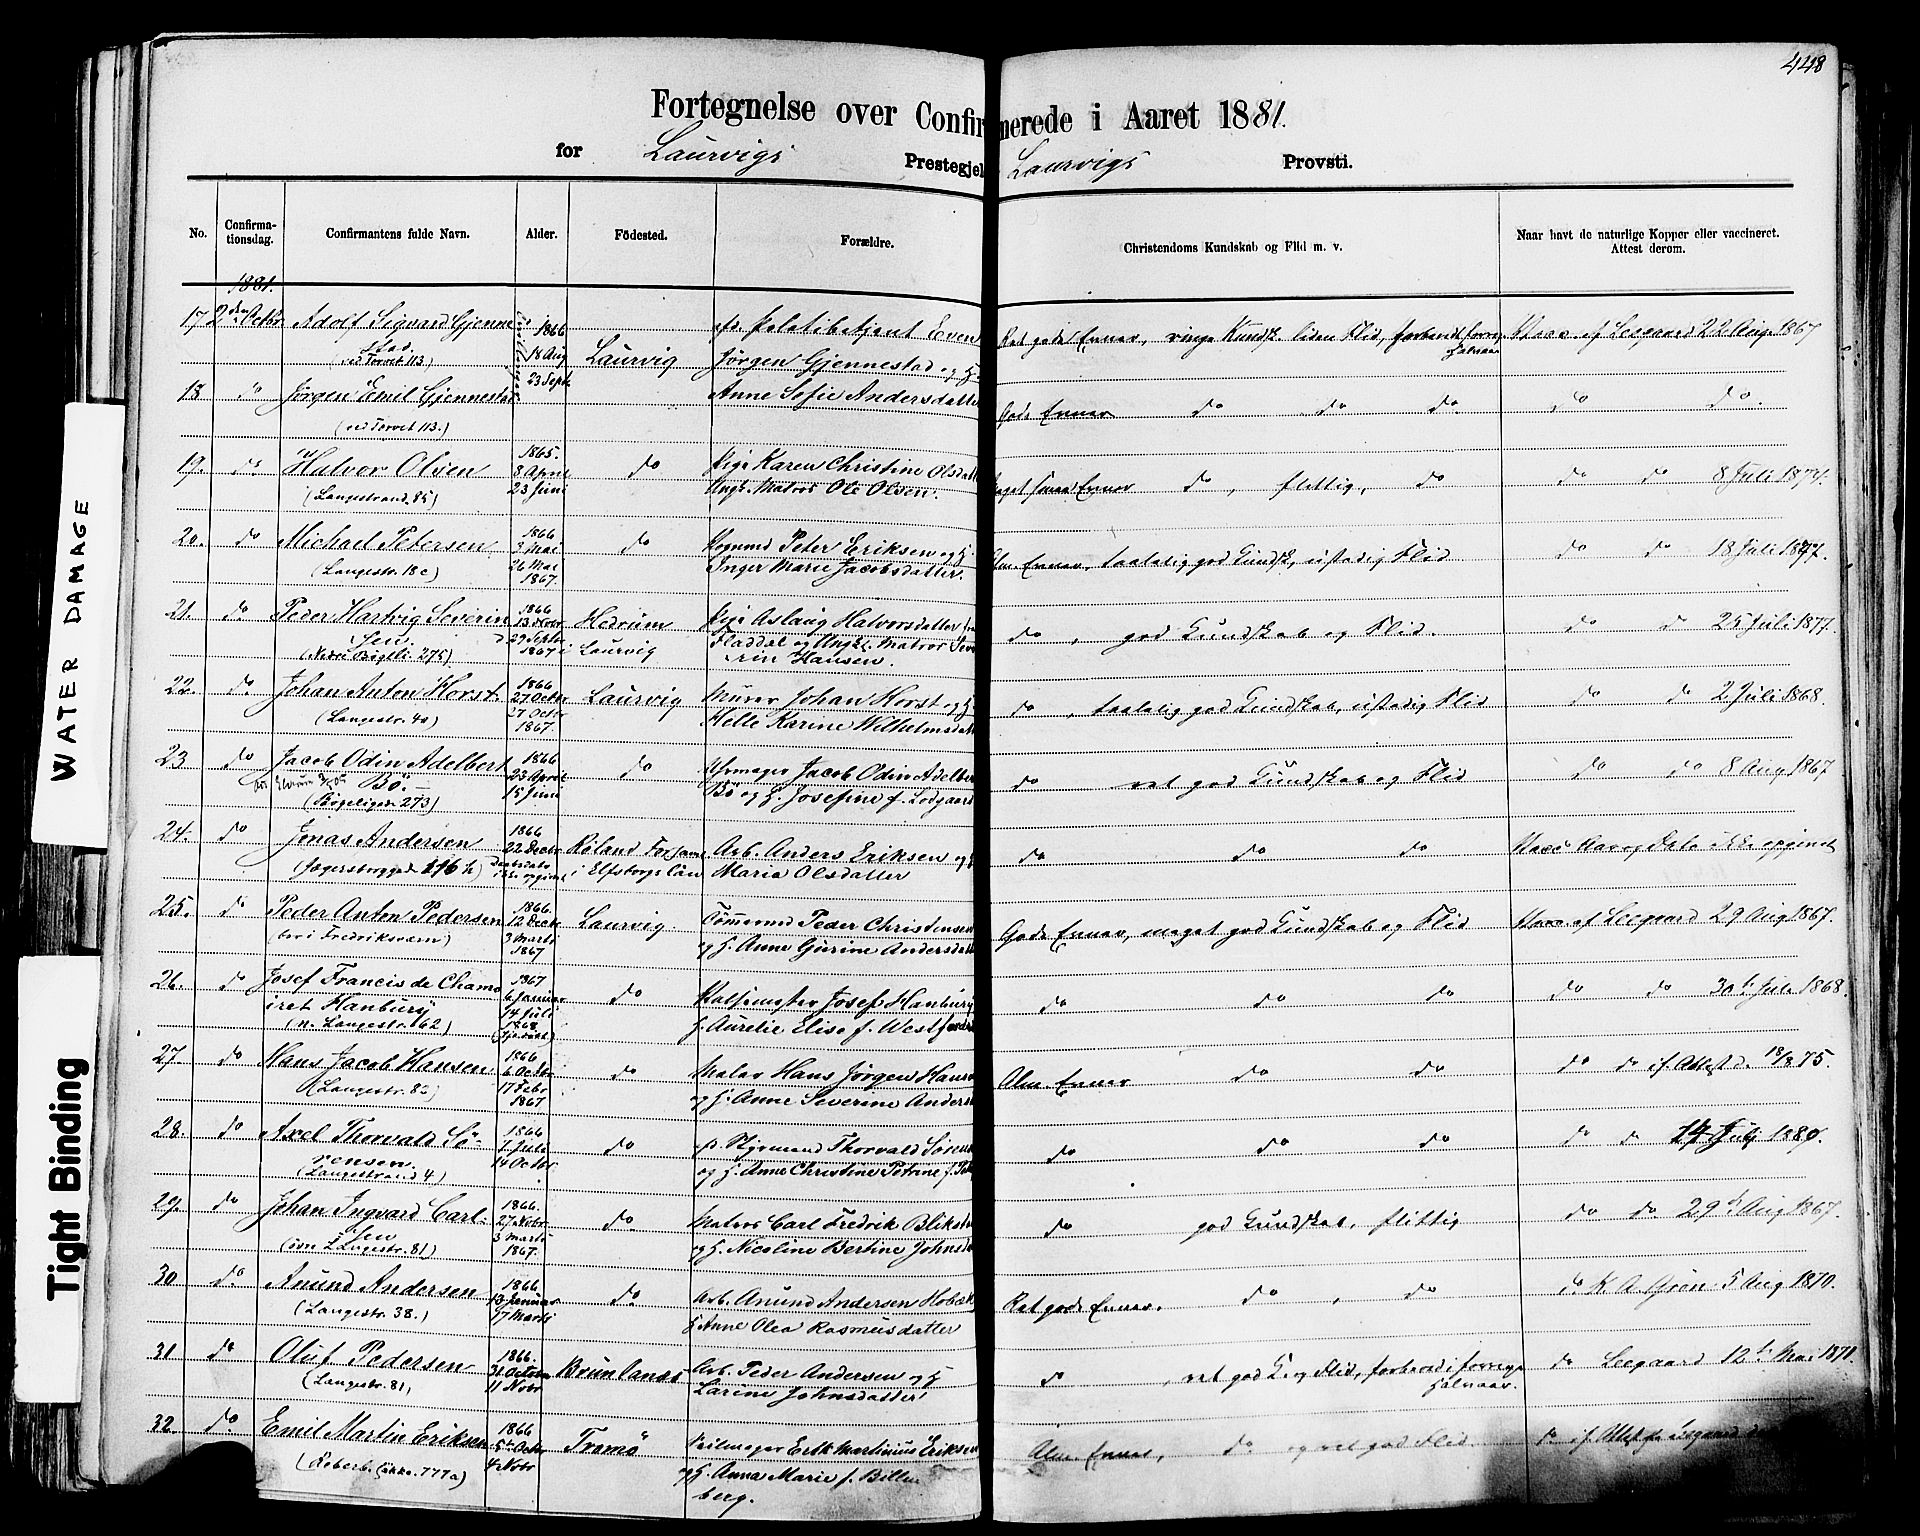 448
Fortegnelse over Confirmerede i Aaret 1881.
for Laurvigs Prestegjel Laurvigs Provsti.
No. Confirma-tionsdag. Confirmantens fulde Navn. Alder. Födested. Forældre. Christendoms Kundskab og Flid m. v. Naar havt de naturlige Kopper eller vaccineret. Attest derom.
1881.
17 2den Octbr Adolf Sigvard Gjenne 1866 Even
stad 18 Aug Laurvig Jørgen Gjennestad og H.
(ved Torvet 113) 23 Septr
Ret gode Evner, ringe Kundsk. liden Flid, Vacc. af Leegaard 22 Aug 1867
18 do Jørgen Emil Gjennestad Anne Sofie Andersdatter Gode Evner do do do do do.
(ved Torvet 113.)
19. do Halvor Olsen 1865. 8 April 23 Juni do Pige Karen Christine Olsdatt
(Langestrand 85) Ungk. Matros Ole Olsen.
Meget smaa Evner do, flittig, do do do 8 Juli 1874.
20. do Michael Petersen 1866 3 Mai 26 Mai 1867. do Peter Eriksen og H.
(Langestr. 18c) Inger Marie Jacobsdatter.
Alm. Evner, taalelig god Kundsk., ustadig Flid do do 18 Juli 1877.
21. do Peder Hartvig Severin 1866 13 Novbr 29 Septbr 1867 Hedrum i Laurvig Pige Aslaug Halvorsdatter fra
sen Fladdal og Ungk. Matros Seve
(Nedre Bögeli. 275) rin Hansen.
do, god Kundskab og Flid. do do 25 Juli 1877.
22. do Johan Anton Horst 1866 27 Octbr 27 Octbr 1867. Laurvig Murer Johan Horst og H.
(Langestr. 40) Helle Karine Wilhelmsdatt
do, taalelig god Kundskab, ustadig Flid do do 2 Juli 1868.
23 do Jacob Odin Adelbert 1866 23 April 15 Juni do Uhrmager Jacob Odin Adelber
Bö. Bö og H. Josefine f. Lodgaard
(Bögeligd. 273)
do ret god Kundskab og Flid do do 8 Aug 1867
24. do Jonas Andersen 1866 22 Decbr Daabsdato ikke opgivet Röland i Elfsborgs Län Arb. Anders Eriksen og H
(Jægersborggd. 116 h) Maria Olsdatter
do do do Vacc Dato ikke opgivet
25. do Peder Anton Pedersen 1866. 12 Decbr 3 Marts 1867 Laurvig Tömmermd Peder Christensen
(bor i Fredriksværn) og H. Anne Gurine Andersdatt
Gode Evner, meget god Kundskab og Flid Vacc af Leegaard 29 Aug 1867.
26. do Josef Francis de Chamo 1867 6 Januar 14 Juli 1868 do Josef Hanbury
iret Hanbury H. Aurelie Elise f. West
(n. Langestr. 62)
do do do do do 30te Juli 1868.
27. do Hans Jacob Hansen 1866 6 Octbr 17 Febr 1867 do Maler Hans Jørgen Hansen
(Langestr. 82) og H. Anne Severine Anders
Alm. Evner do do do do if. Attest d. 18/8 75.
28. do Axel Thorvald Sö- 1866 7 Juli 14 Octbr do Styrmand Thorvald Sörens
rensen. og H. Anne Christine Petrine f. Pet
(Langestrand 4)
do do do do do 14 Juli 1880.
29. do Johan Ingvard Carl- 1866. 27 Novbr 3 Marts 1867. do Matros Carl Fredrik Blikst
sen og H. Nicoline Bertine Johnsd
(övre Langestr. 81)
do god Kundskab, flittig do do 29de Aug 1867.
30 do Anund Andersen 1866 13 Januar 17 Marts do. Arb. Anund Andersen Hobæk
(Langestr. 38.) H. Anne Olea Rasmusdatter
Ret gode Evner. do, do do K. A. Grøn 5 Aug 1870.
31 do Oluf Pedersen 1866. 31 Octobr 11 Novbr Brunlanæs Arb. Peder Andersen og H
(Langestr. 81) Larine Johnsdatter
do, ret god K. og Flid, forbered. i forrige Halvaar. do Leegaard 12te Mai 1871.
32 do Emil Martin Eriksen 1866 5te Octbr 4 Novbr Tromö Seilmager Erik Martinius Eriksen
777a) og H. Anna Marie f. Billen
berg.
Alm. Evner, do og ret god Flid. do if. Attest fra Leegaard
WATER DAMAGE
Tight Binding